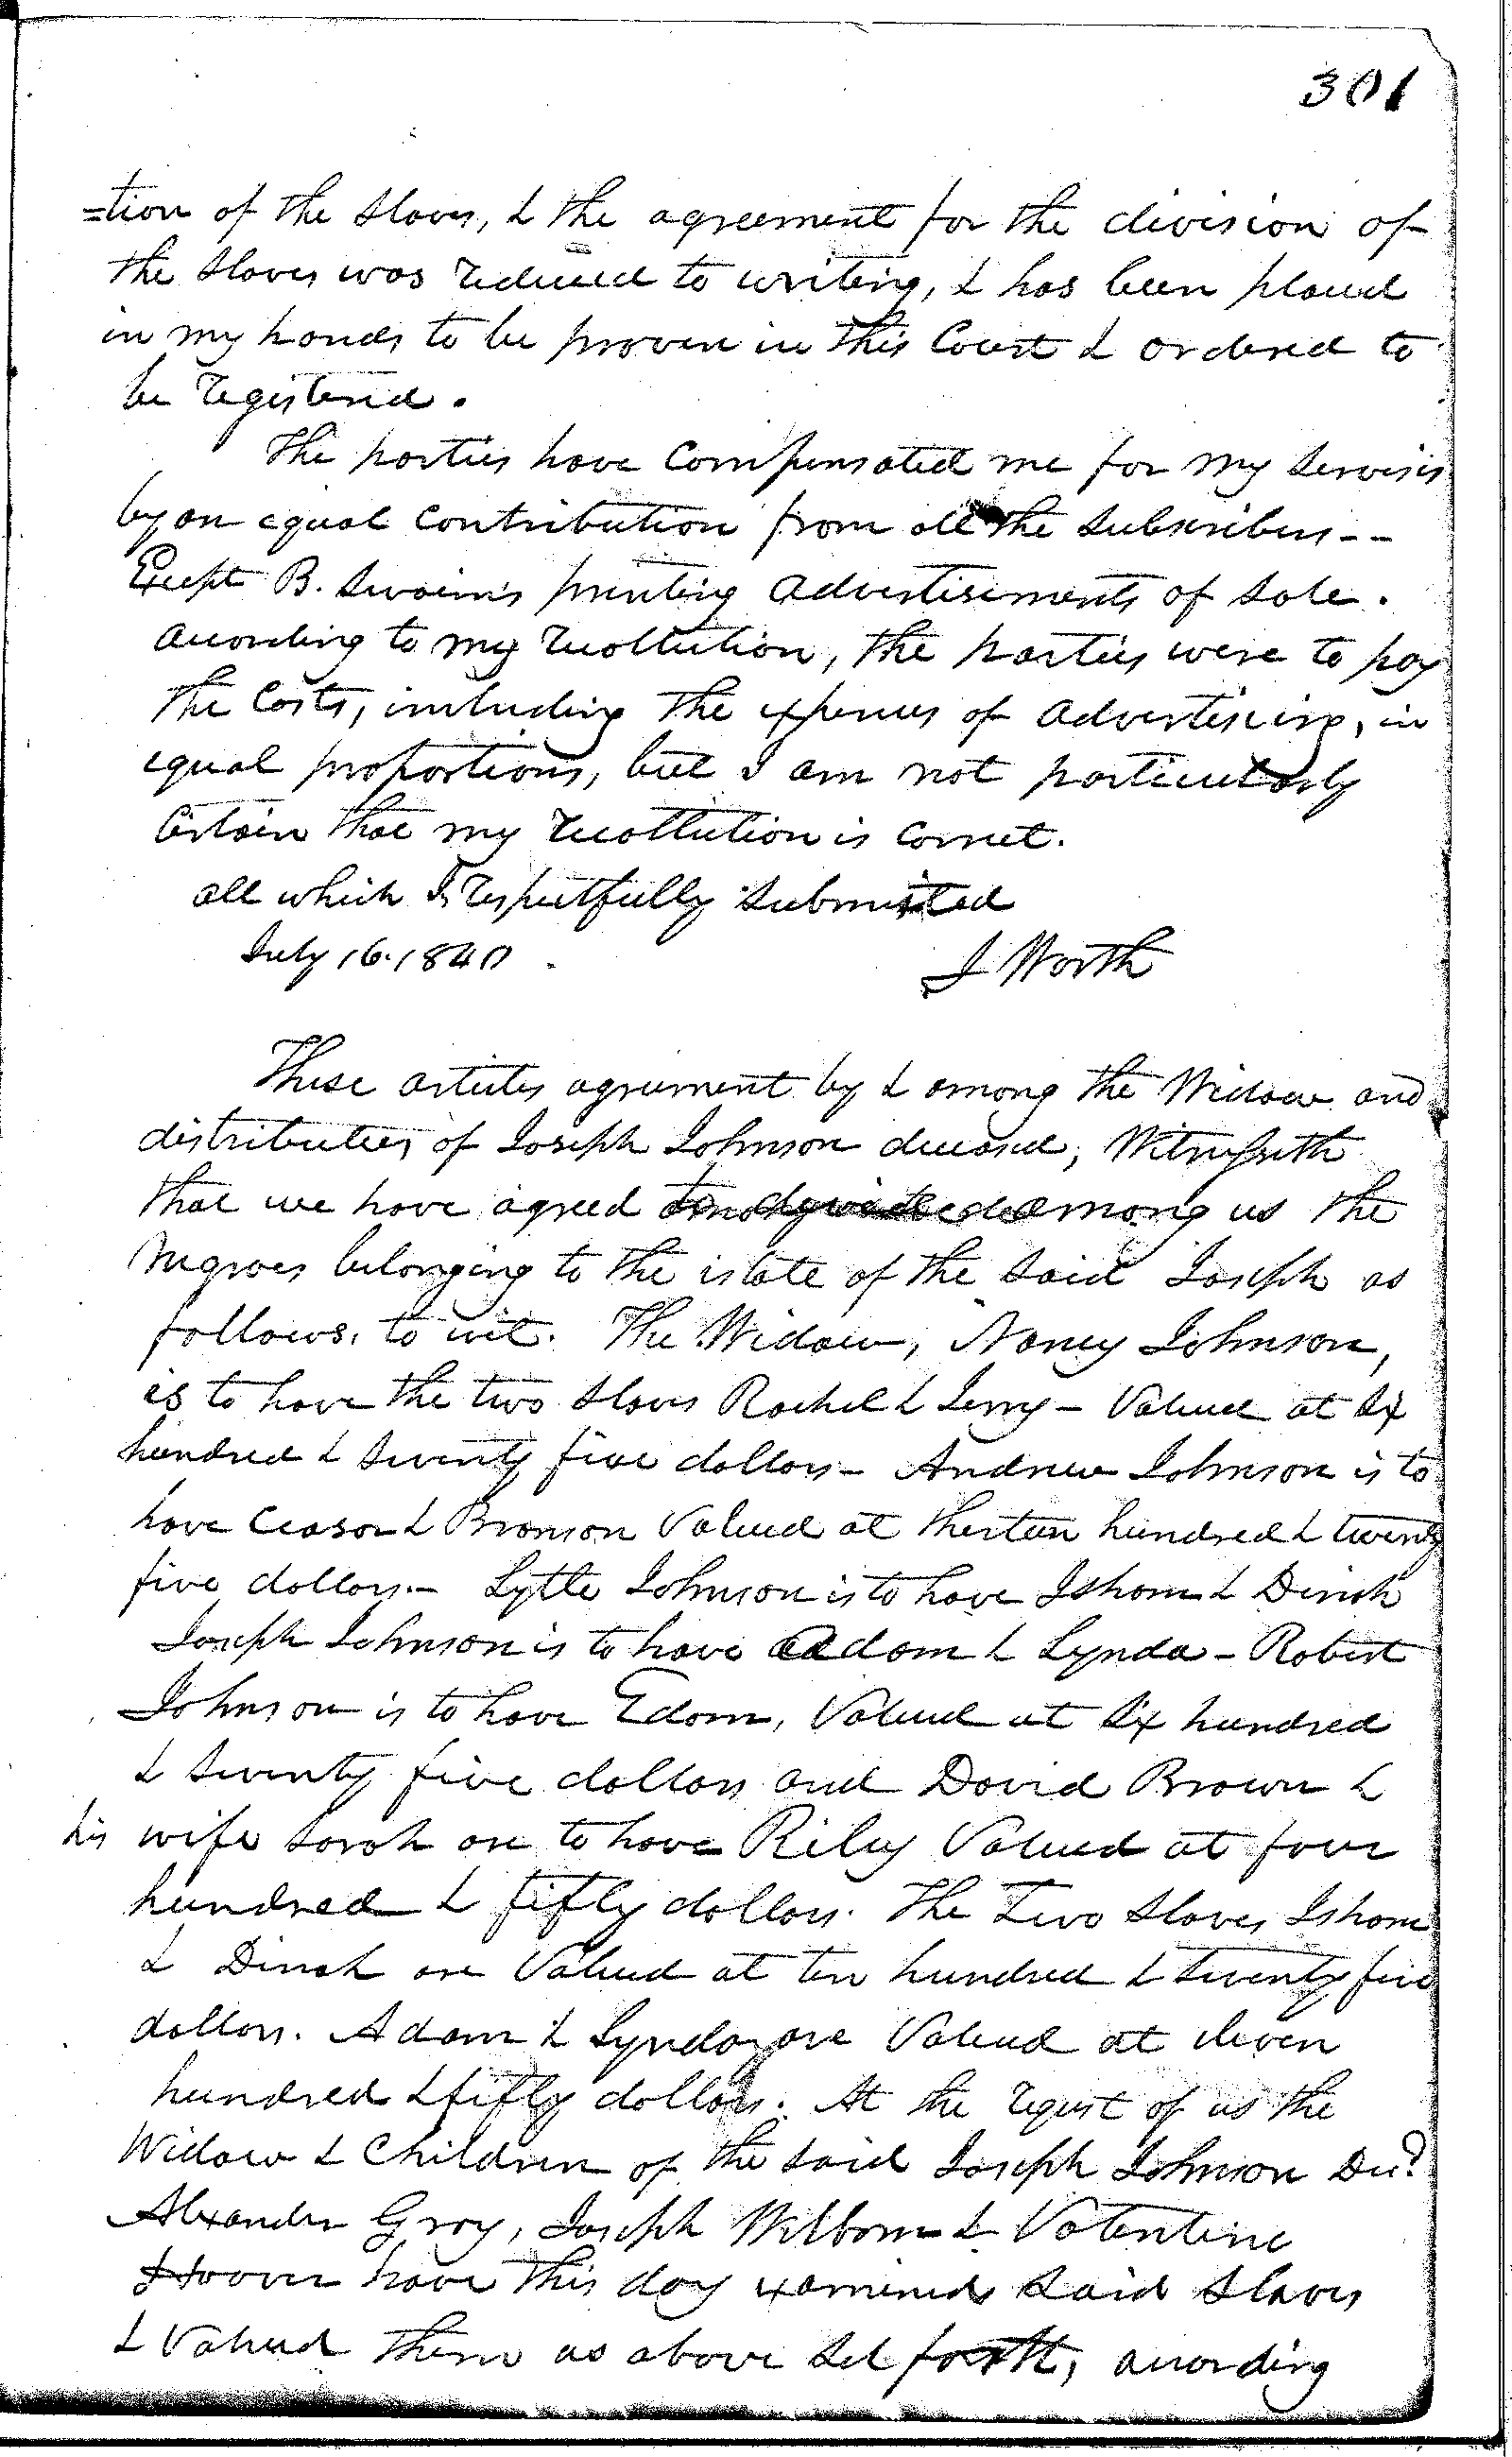 301
=tion of the slaves, & the agreement for the division of
the slaves was reduced to writing, & has been placed
in my hands to be proven in this Court & ordered to
be registered.
The parties have compensated me for my servises
by an equal contribution from all the subscribers --
Except B. Swaim's printing advertisements of sale.
according to my recollection, the parties were to pay
the costs, including the expenses of advertising, in
equal proportions, but I am not particularly
certain that my recollection is correct.
all which is respectfully submitted
July 16. 1840.
J Worth
These articles agreement by & among the Widow and
distributees of Joseph Johnson deceased, Witnesseth
that we have agreed among us the
negroes belonging to the estate of the said Joseph as
follows, to wit. The Widow, Nancy Johnson,
is to have the two slaves Rachel & Jerry - Valued at six
hundred & seventy five dollars - Andrew Johnson is to
have Ceasor & Bronson Valued at therteen hundred & twenty
five dollars. - Lytle Johnson is to have Isham & Dinah
Joseph Johnson is to have Adam & Lynda - Robert
Johnson is to have Edom, Valued at six hundred
& seventy five dollars and David Brown &
his wife Sarah are to have Riley Valued at four
hundred & fifty dollars. The Two slaves Isham
& Dinah are Valued at ten hundred & seventy five
dollars. Adam & Lynda are Valued at eleven
hundred & fifty dollars. At the request of us the
Widow & Children of the said Joseph Johnson Decd
Alexander Gray, Joseph Welborn & Valentine
Hoover have this day examined said slaves
& Valued them as above set forth, according